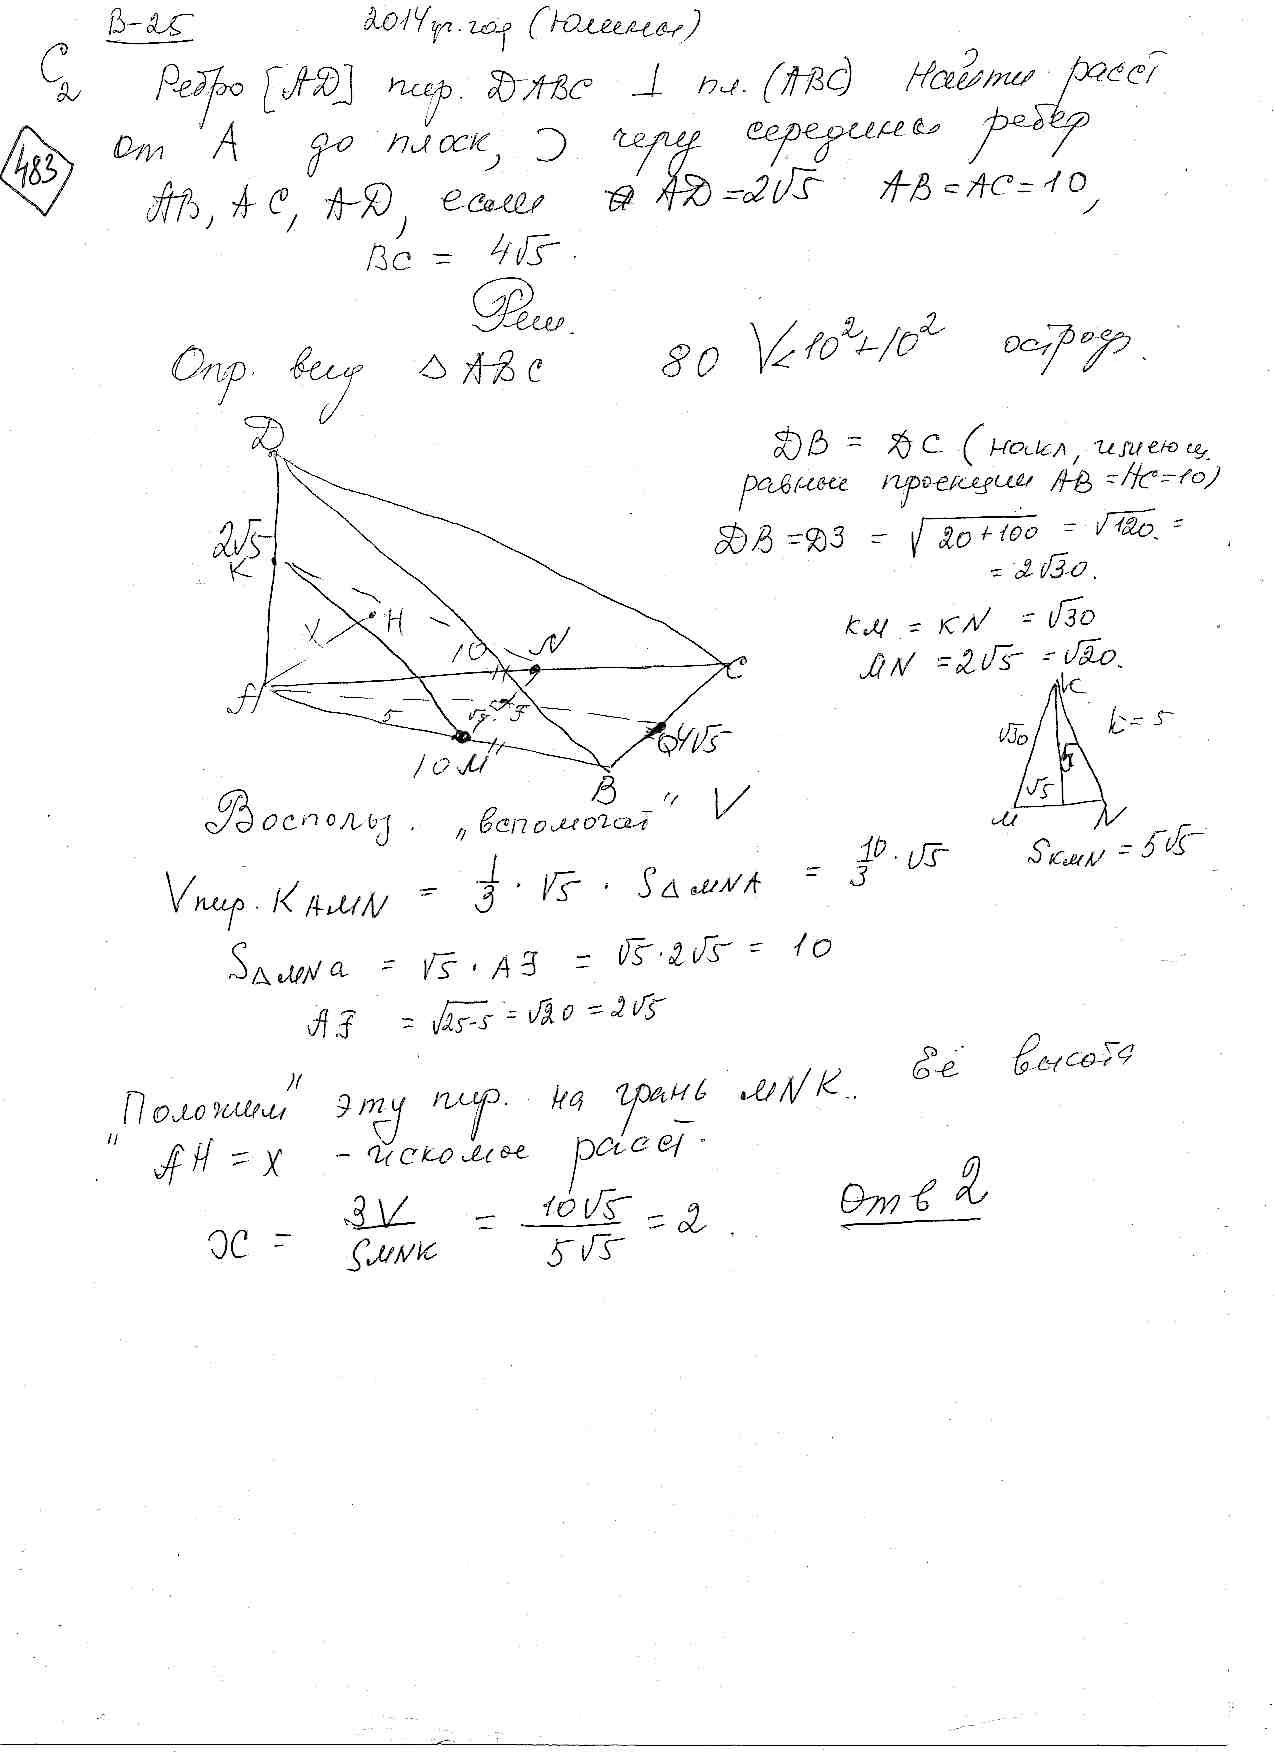 В-25 2014 уч. год (Юлины)
C2 Ребро [AD] пир. DABC ⊥ пл. (ABC) Найти расст
483 от A до плоск, ⊃ через середины ребер
AB, AC, AD, если AD = 2√5 AB = AC = 10,
BC = 4√5.
Реш.
Опр. вид △ ABC 80 V< 10² + 10² остроуг.
D
DB = DC (накл, имеющ.
равные проекции AB = AC = 10)
2√5
K
DB = DЗ = √20+100 = √120 =
= 2√30.
X H
KM = KN = √30
10 N
MN = 2√5 = √20.
A C
5 √5 J
Q 4√5
10 M
B
K
√30 h = 5
5
√5
M N
Воспольз. "вспомогат" V
SKMN = 5√5
Vпир. KAMN = 1/3 · √5 · S△MNA = 10/3 · √5
S△MNA = √5 · AJ = √5 · 2√5 = 10
AJ = √25-5 = √20 = 2√5
"Положим" эту пир. на грань MNK. Её высота
AH = x - искомое расст.
x = 3V/SMNK = 10√5/5√5 = 2. Отв 2